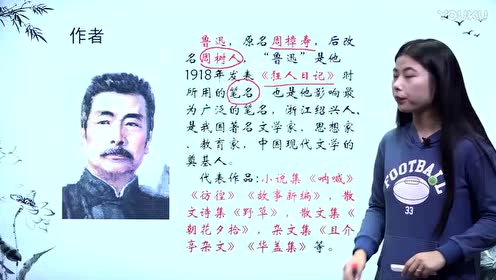 YOUKU
作者
鲁迅,原名周樟寿,后改
名周树人,"鲁迅"是他
1918年发表《狂人日记》时
所用的笔名 也是他影响最
为广泛的笔名,浙江绍兴人.
是我国著名文学家,思想家
.教育家,中国现代文学的
奠基人.
代表作品:小说集《呐喊》
《彷徨》《故事新编》,散
文诗集《野草》,散文集《
朝花夕拾》,杂文集《且介
亭杂文》《华盖集》等。
FOOTBALL
33